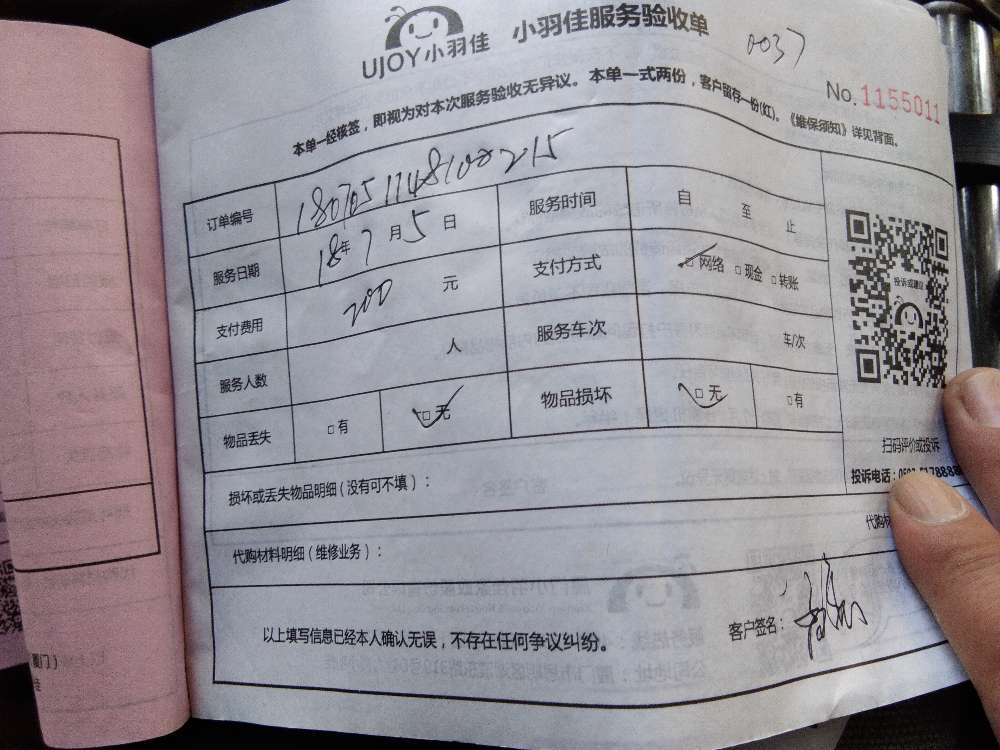 UJOY小羽佳 小羽佳服务验收单
0037
No.1155011
本单一经核签，即视为对本次服务验收无异议。本单一式两份，客户留存一份(红)。《维保须知》详见背面。
订单编号 180705114810 215
服务日期 18年7月5日 服务时间 自 至 止
支付费用 200 元 支付方式 □网络 □现金 □转账
服务人数 人 服务车次 车/次
物品丢失 □有 □无 物品损坏 □无 □有
投诉或建议
扫码评价或投诉
投诉电话：
损坏或丢失物品明细(没有可不填)：
代购材料明细(维修业务)： 代购材
以上填写信息已经本人确认无误，不存在任何争议纠纷。
客户签名：
厦门)